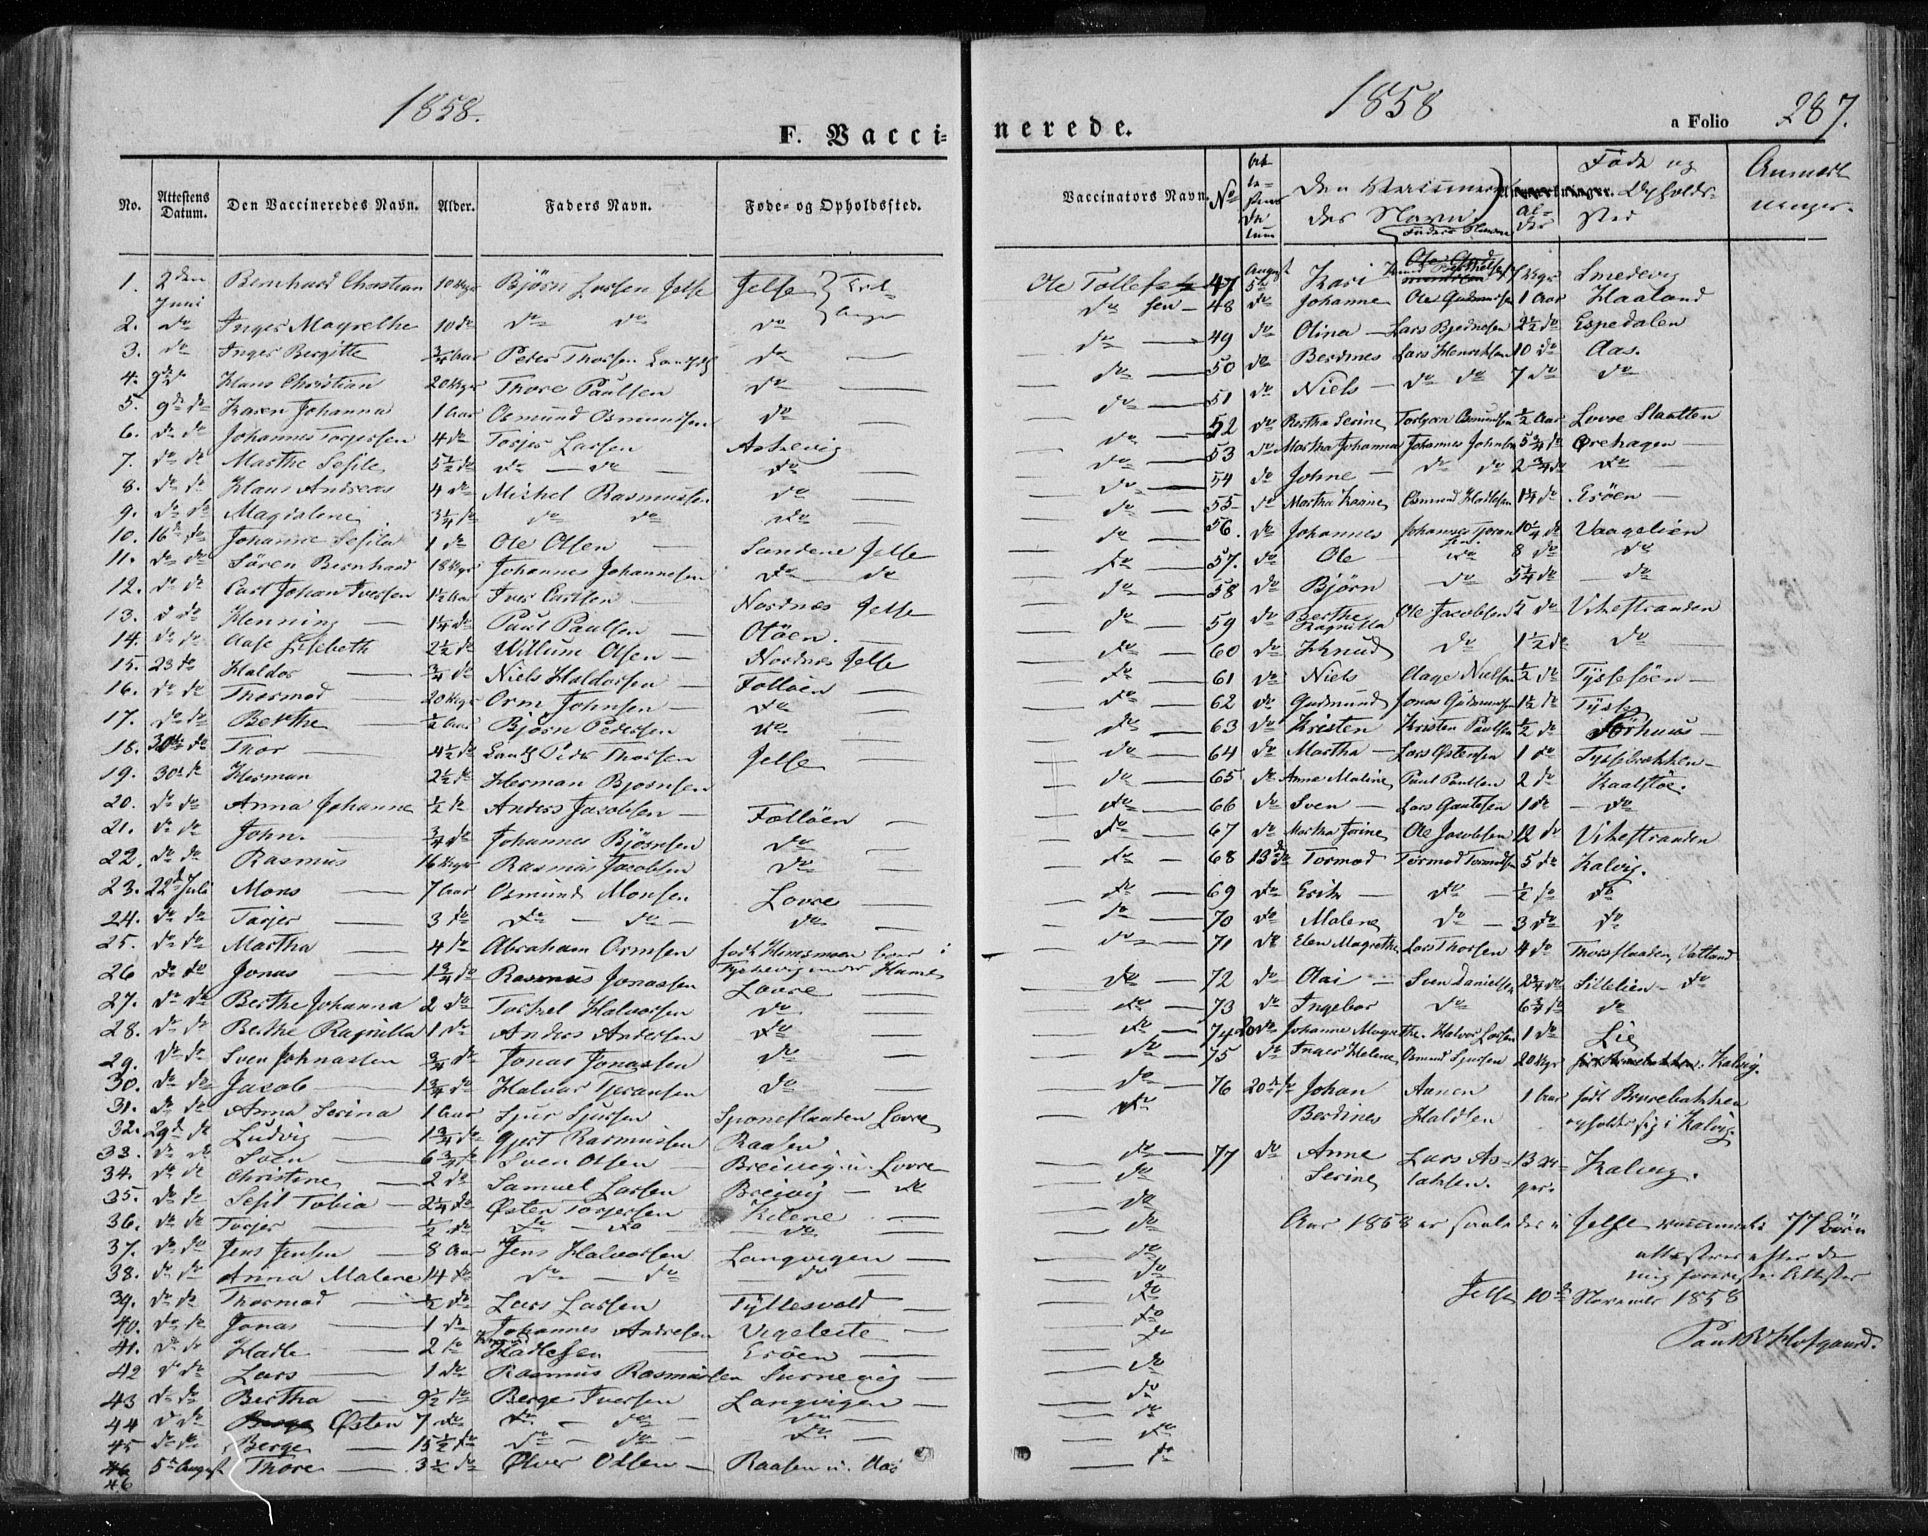 1858.
F. Vacci-
No. Attestens Datum. Den Vaccineredes Navn. Alder. Faders Navn. Føde- og Opholdssted.
1. 2den Juni Bernhard Christian 10 Uger Bjørn Larsen Jelse Jelse
2. do Inger Magrethe 10 do do do do
3. do Inger Bergitte 3/4 Aar Peter Thorsen do
4. 9de do Hans Christian 20 Uger Thore Paulsen do
5. 9de do Karen Johanna 1 Aar Osmund Osmundsen do
6. do do Johannes Torjersen 4 do Torjer Larsen
7. do do Marthe Sesile 5 1/2 do do do do
8. do do Hans Andreas 4 do Michel Rasmussen do
9. do do Magdalene 3 1/4 do do do do
10. 16de do Johanne Sesila 1 do Ole Olsen Sandene Jelse
11. do do Sören Bernhard 18 Uger Johannes Johannesen do do
12. do do Carl Johan Iversen 1 1/2 Aar Iver Carlsen Nordnes Jelse
13. do do Henning 1 1/4 do Paul Paulsen Otöen.
14. do do Aase Lisebeth 2 1/2 do Willum Olsen Nordnes Jelse
15. 23 do Haldor 3/4 do Niels Haldorsen Folløen
16. do do Thormod 20 Uger Orm Johnsen do
17. do do Berthe 1/2 Aar Bjørn Pedersen do
18. 30te do Thor 4 1/2 do Peder Thorsen Jelse
19. 30te do Herman 2 1/2 do Herman Bjørnsen
20. do do Anna Johanne 1/2 do Anders Jacobsen Folløen
21. do do John. 3/4 do Johannes Bjørnsen do
22. do do Rasmus 16 Uger Rasmus Jacobsen do
23. 22de Juli Mons 7 Aar Osmund Monsen Lovre
24. do do Torjer 3 do do do do
25. do do Martha 4 do Abraham Ormsen
26 do do Jonas 1 3/4 do Rasmus Jonassen Lovre
27. do do Berthe Johanna 2 do Torkel Halvorsen do
28. do do Berthe Ragnilla 1 do Anders Andersen do
29. do do Sven Johnassen 3/4 do Jonas Jonassen do
30. do do Jacob 1 3/4 do Halvor Tjeransen do
31. do do Anna Serina 1 Aar Sjur Sjursen Sponeflaaden Lovre
32. 29de do Ludvig 1 3/4 do Gjert Rasmussen Raasen
33. do do Sven 6 3/4 do Sven Olsen Breivig u. Lovre
34. do do Christine 2 do Samuel Larsen Breivig do
35. do do Sesil Tobia 2 1/4 do Østen Torjersen Kilene
36. do do Torjer 1/2 do do do do
37. do do Jens Jensen 8 Aar Jens Halvorsen Langvigen
38. do do Anna Malene 14 do do do do
39. do do Thormod 1/2 do Lars Larsen Tyllesvold
40. do do Jonas 1 do Johannes Andresen Vigeleite
41. do do Hadle 2 do Hadlesen Erøen
42 do do Lars 1 do Rasmus Rasmussen Surnevig
43 do do Bertha 9 1/2 do Berge Iversen Langvigen
44 do do Østen 7 do do do do
45 do do Berge 15 1/2 do do do do
46 5te August Thore 3 1/2 do Ølver Odsen Raasen u. Aas
1858
a Folio 287.
nerede.
Vaccinators Navn. No Den Vaccineredes Navn. Faders Navn Alder Føde og Opholdssted Anmærkninger.
Ole Tollefsen 47 August 5te Kari 7 Uger Smedevig
do 48 do Johanne Ole Gudmunsen 1 Aar Haaland
do 49 do Olina Lars Bjednesen 2 1/2 do Espedalen
do 50 do Berdines Lars Henriksen 10 do Aas.
do 51 do Niels do do 7 do do
do 52 do Bertha Serine Torbjørn Osmundsen 1/2 Aar Lovre Slaatten
do 53 do Martha Johanna Johannes Johnsen 5 3/4 do Ørehagen
do 54 do Johne do do 2 3/4 do do
do 55 do Martha Karine Osmund Hadlesen 1 1/4 do Erøen
do 56. do Johannes Johannes Tjeransen 10 1/4 do Vaagelien
do 57. do Ole do 8 do do
do 58 do Bjørn do 5 1/4 do do
do 59 do Berthe Ragnilla Ole Jacobsen 5 do Vikestranden
do 60 do Knud do 1 1/2 do do
do 61 do Niels Aage Nielsen 1/2 do Tysseføen
do 62 do Gudmund Jonas Gudmundsen 1 1/2 do Tysse
do 63 do Kristen Kristen Paulsen 1/2 do Förhuus
do 64 do Martha Lars Østensen 1 do Tyssebakken
do 65 do Anna Maline Paul Paulsen 2 do Kaalstöe.
do 66 do Sven Lars Gautesen 1 do do
do 67 do Martha Jorine Ole Jacobsen 12 do Vikestranden
do 68 13de do Tormod Tormod Tormodsen 5 do Kalvig.
do 69 do Erik do 1/2 do do
do 70 do Malene do 3 do do
do 71 do Elen Magrethe Lars Thorsen 4 do Thorsflaaden, Vatland
do 72 do Olai Sven Danielsen 2 3/4 do Lillelien do
do 73 do Ingebor do 6 3/4 do do
do 74 20 do Johanne Magrethe Halvor Larsen 1 do Lie
do 75 do Inger Helene Osmund Sjursen 20 Uger Kalvig.
do 76 20de do Johan Berdines Aanen Haldsen 1 Aar født Bruebakken opholder sig i Kalvig.
do 77 do Anne Serine Lars Aslaksen. 13 Uger. Kalvig.
Aar 1858 er saaledes i Jelse vaccinerede 77 Børn
attesteres efter de
mig foreviste Attester
Jelse 10de November 1858